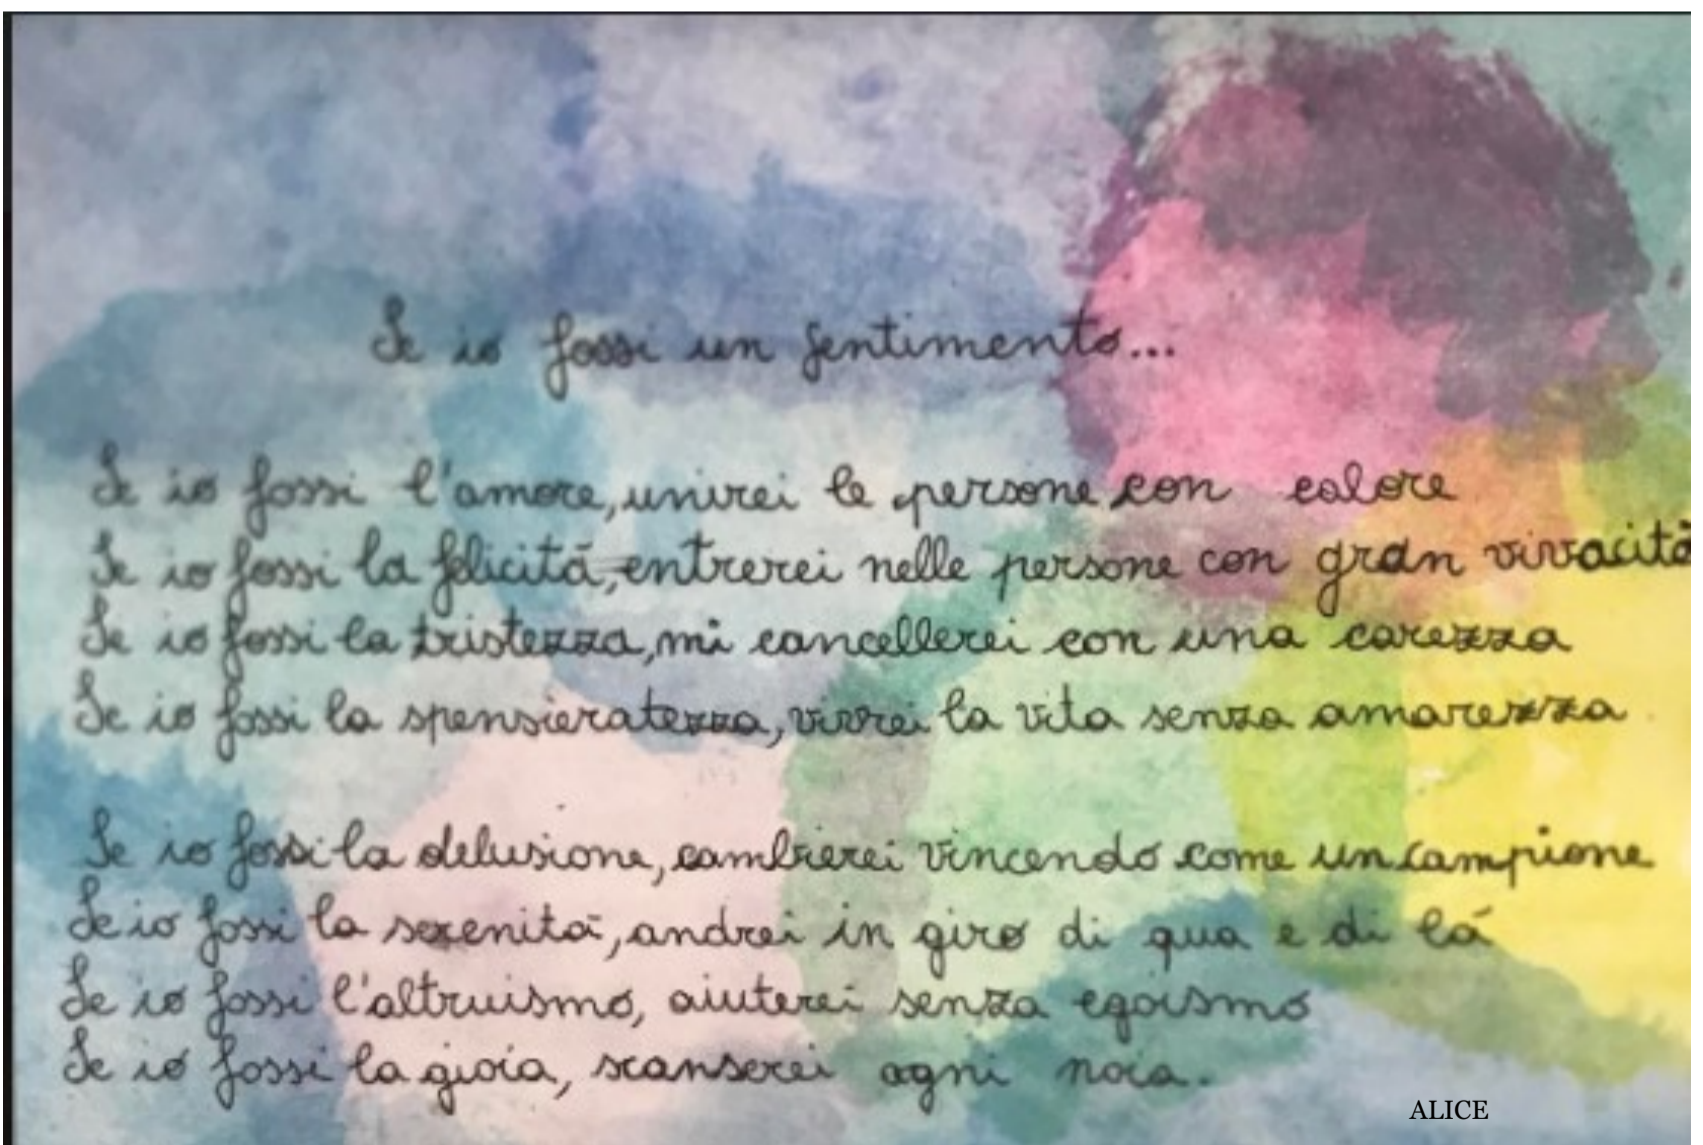 Se io fossi un sentimento...
Se io fossi l'amore, unirei le persone con calore
Se io fossi la felicità, entrerei nelle persone con gran vivacità
Se io fossi la tristezza, mi cancellerei con una carezza
Se io fossi la spensieratezza, vivrei la vita senza amarezza
Se io fossi la delusione, cambierei vincendo come un campione
Se io fossi la serenità, andrei in giro di qua e di lá
Se io fossi l'altruismo, aiuterei senza egoismo
Se io fossi la gioia, scanserei ogni noia.
ALICE